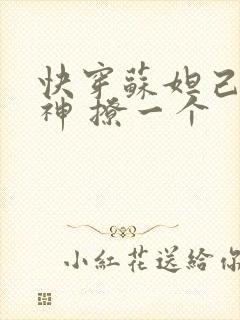 快穿蘇妲己
神 撩一个
小紅花送給你